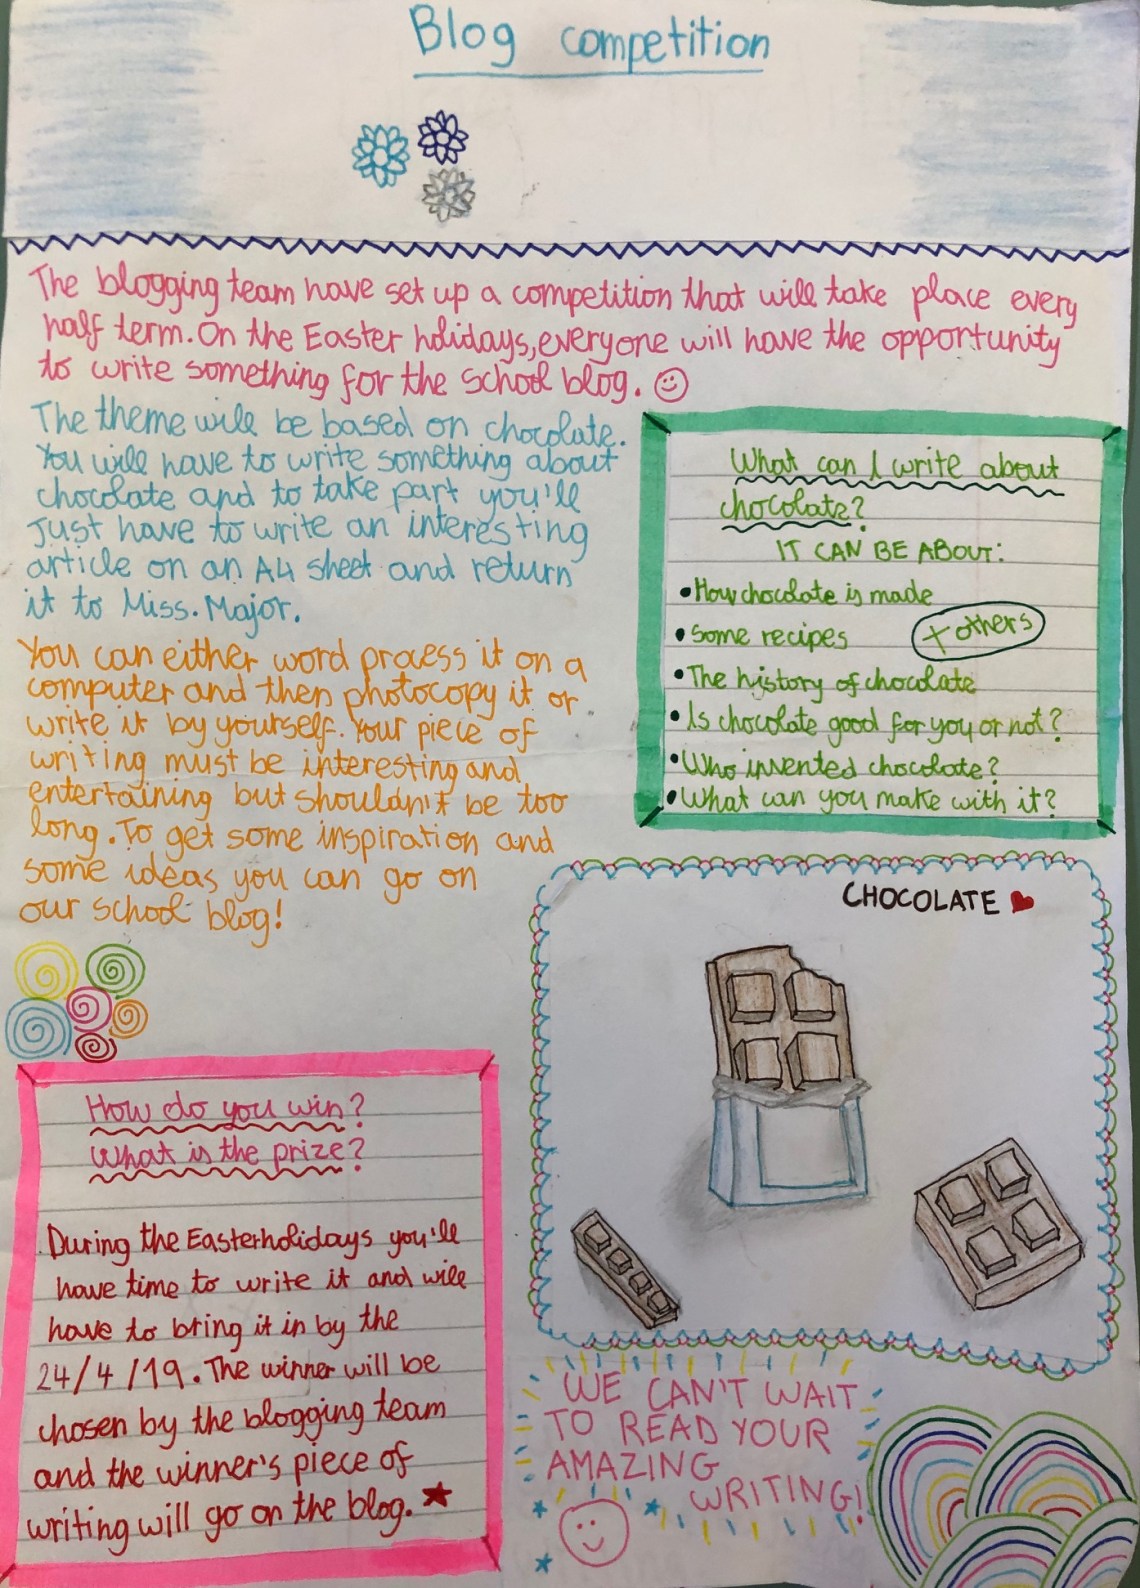 Blog competition
The blogging team have set up a competition that will take place every
half term. On the Easter holidays, everyone will have the opportunity
to write something for the school blog.
The theme will be based on chocolate.
You will have to write something about
chocolate and to take part you'll
just have to write an interesting
article on an A4 sheet and return
it to Miss. Major.
You can either word process it on a
computer and then photocopy it or
write it by yourself. Your piece of
writing must be interesting and
entertaining but shouldn't be too
long. To get some inspiration and
some ideas you can go on
our school blog!
What can I write about
chocolate?
IT CAN BE ABOUT:
• How chocolate is made
• Some recipes
+ others
• The history of chocolate
• Is chocolate good for you or not?
• Who invented chocolate?
• What can you make with it?
CHOCOLATE
How do you win?
What is the prize?
During the Easter holidays you'll
have time to write it and will
have to bring it in by the
24/4/19. The winner will be
chosen by the blogging team
and the winner's piece of
writing will go on the blog.
WE CAN'T WAIT
TO READ YOUR
AMAZING
WRITING!